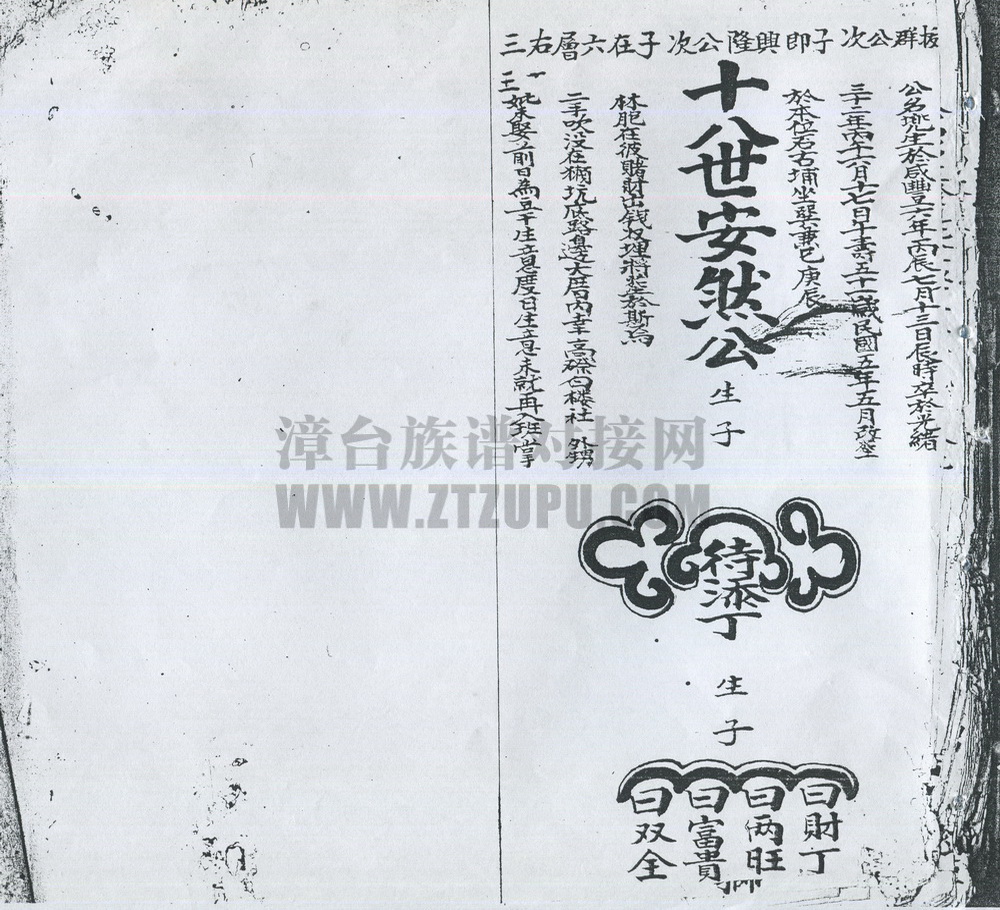 拔群公次子即興隆公次子在六層右三
公名虵生於咸豐六年丙辰七月十三日辰時卒於光緒
三十二年丙午六月十七日午壽五十一歲民國五年五月改塟
於本位右古埔坐巽兼巳庚辰
十八世安然公
林肥在彼賭財出錢收埋將塟於斯焉
二手吹没在獺坑底路邊大厝内幸高磜白楼社外甥
一妣未娶前日為豆干生意度日生意未就再入班掌
生子
待添丁
生子
曰財丁
曰两旺
曰富貴
曰双全
漳台族谱对接网
WWW.ZTZUPU.COM